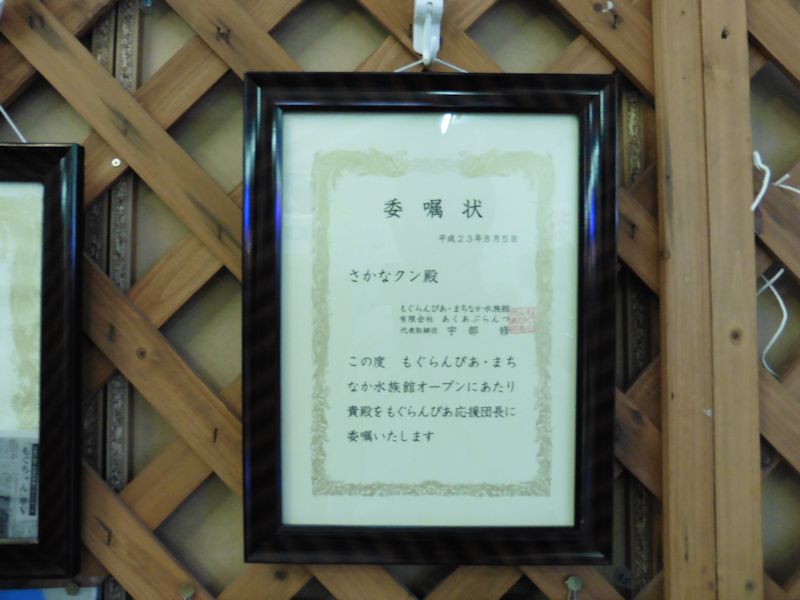 委嘱状
平成23年8月5日
さかなクン殿
もぐらんぴあ・まちなか水族館
有限会社 あくあぷらんつ
代表取締役 宇部 修
この度 もぐらんぴあ・まち
なか水族館オープンにあたり
貴殿をもぐらんぴあ応援団長に
委嘱いたします